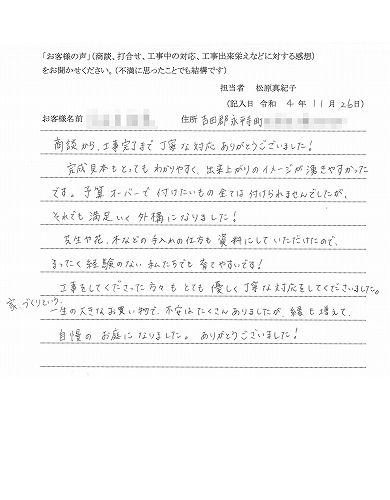 「お客様の声」(商談、打合せ、工事中の対応、工事出来栄えなどに対する感想)
をお聞かせください。(不満に思ったことでも結構です)
担当者 松原真紀子
(記入日 令和 4年 11月 26日)
お客様名前 住所 吉田郡永平寺町
商談から、工事完了まで 丁寧な対応 ありがとうございました!
完成見本もとってもわかりやすく、出来上がりのイメージが湧きやすかった
です。予算オーバーで付けたいもの全ては付けられませんでしたが、
それでも満足いく外構になりました!
芝生や花、木などの手入れの仕方も資料にしていただけたので、
まったく経験のない私たちでも育てやすいです!
工事をしてくださった方々もとても優しく丁寧な対応をしてくださいました。
家づくりという、
一生の大きなお買い物で、不安はたくさんありましたが、緑も増えて、
自慢のお庭になりました。ありがとうございました!